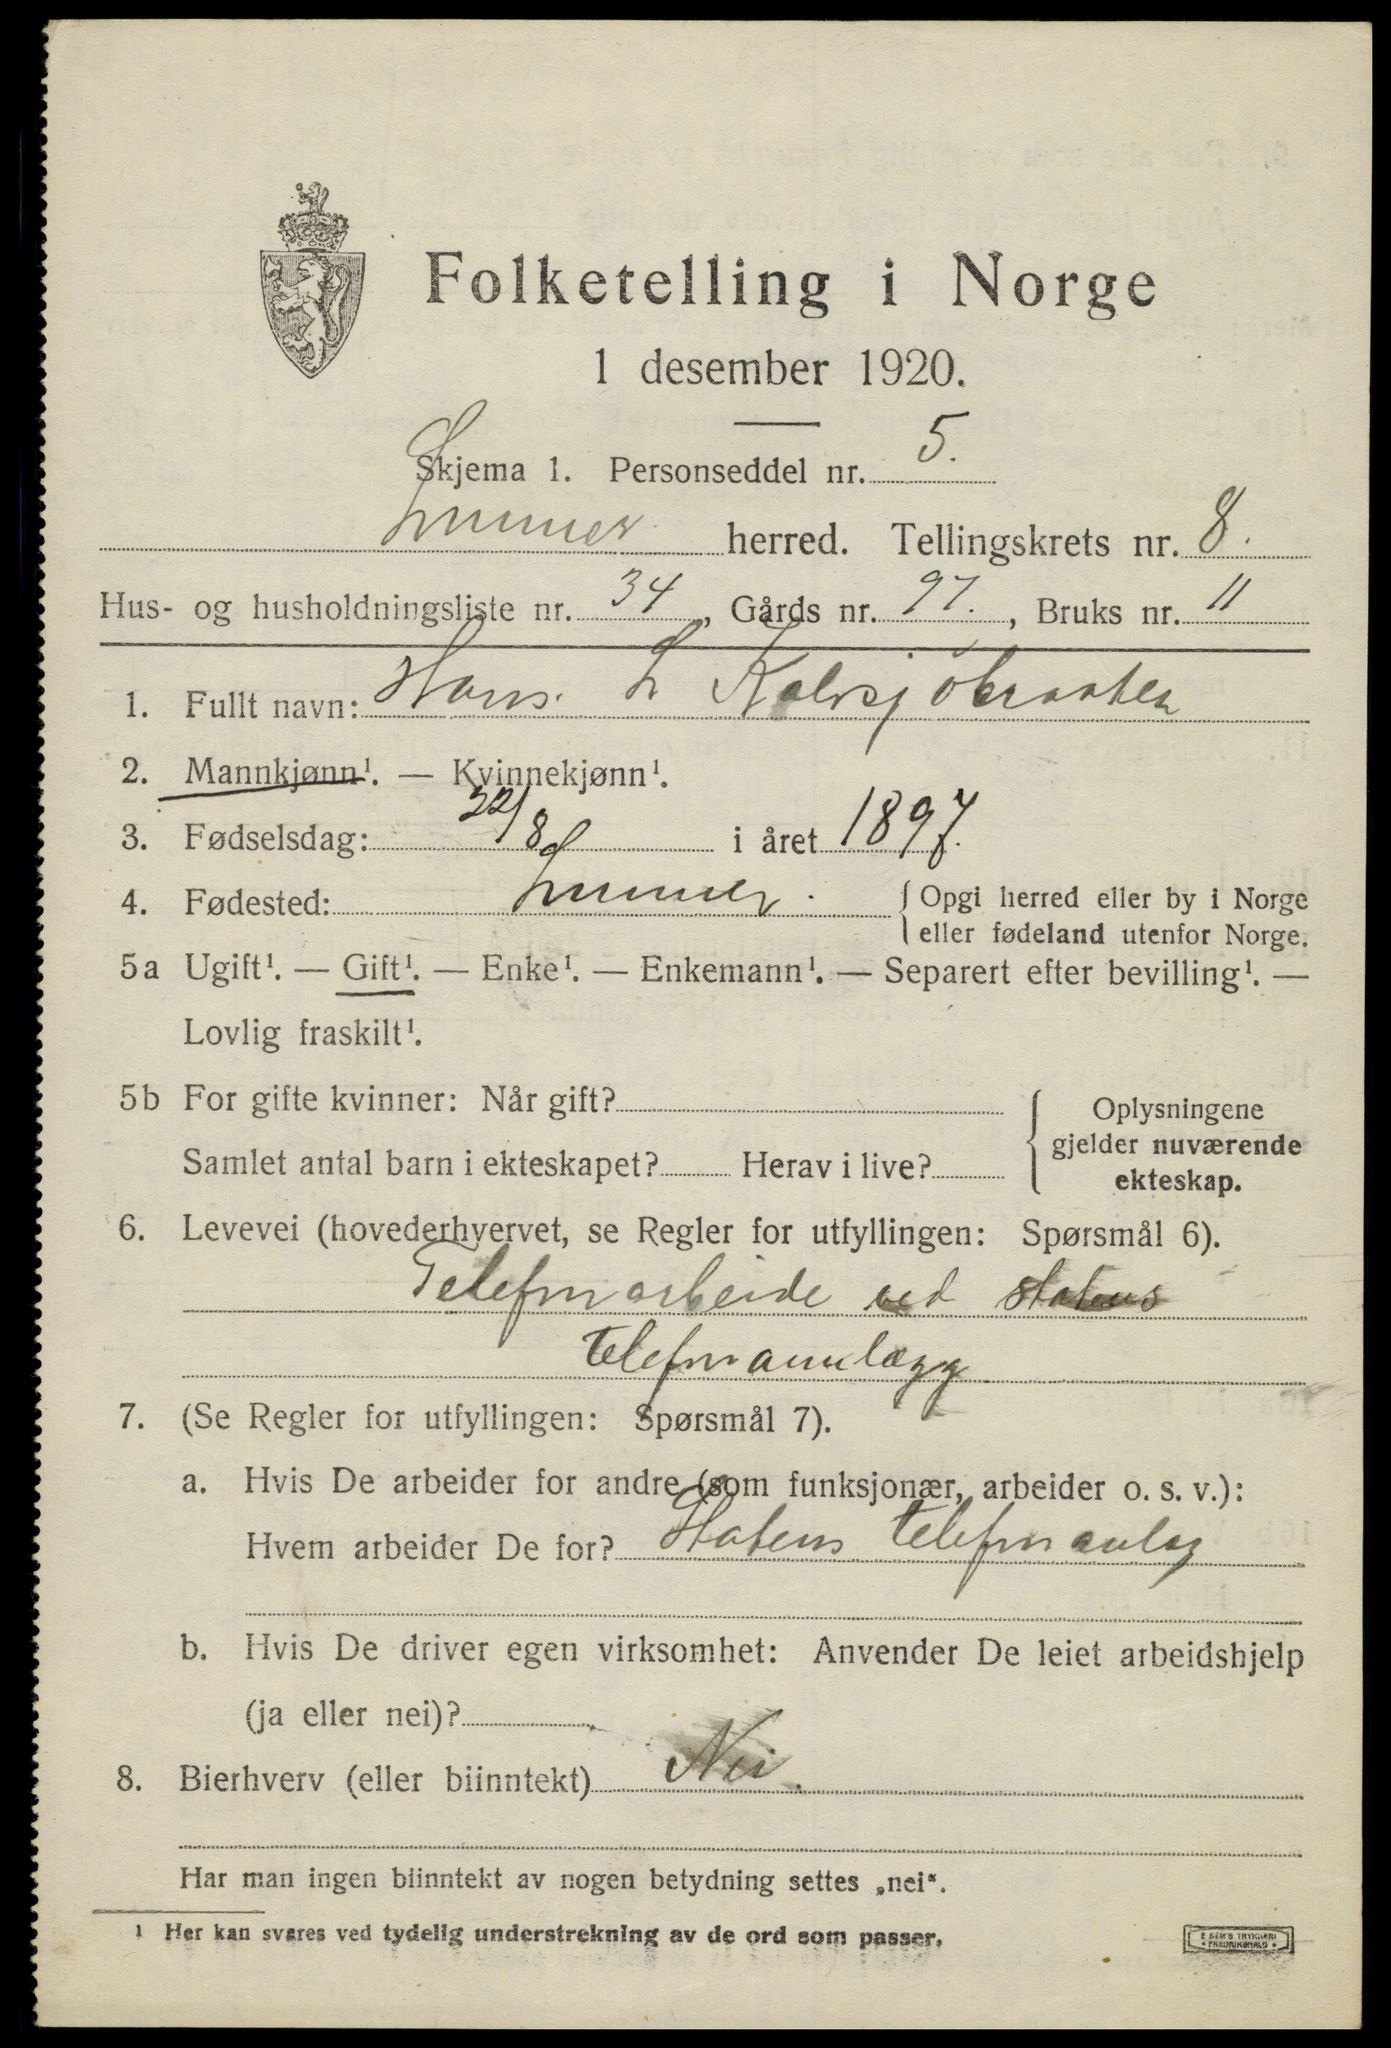 Folketelling i Norge
1 desember 1920.
Skjema 1. Personseddel nr. 5.
Lunner herred. Tellingskrets nr. 8.
Hus- og husholdningsliste nr. 34, Gårds nr. 97., Bruks nr. 11
1. Fullt navn: Hans. L Kalvsjøbraaten
2. Mannkjønn¹. — Kvinnekjønn¹.
3. Fødselsdag: 22/8 i året 1897.
4. Fødested: Lunner. { Opgi herred eller by i Norge
eller fødeland utenfor Norge.
5a Ugift¹. — Gift¹. — Enke¹. — Enkemann¹. — Separert efter bevilling¹. —
Lovlig fraskilt¹.
5b For gifte kvinner: Når gift?
Samlet antal barn i ekteskapet? Herav i live?
{ Oplysningene
gjelder nuværende
ekteskap.
6. Levevei (hovederhvervet, se Regler for utfyllingen: Spørsmål 6).
Telefonarbeide ved statens
telefonanlægg
7. (Se Regler for utfyllingen: Spørsmål 7).
a. Hvis De arbeider for andre (som funksjonær, arbeider o. s. v.):
Hvem arbeider De for? Statens telefonanlæg
b. Hvis De driver egen virksomhet: Anvender De leiet arbeidshjelp
(ja eller nei)?
8. Bierhverv (eller biinntekt) Nei.
Har man ingen biinntekt av nogen betydning settes „nei".
¹ Her kan svares ved tydelig understrekning av de ord som passer.
E. SEM'S TRYKKERI
FREDRIKSHALD